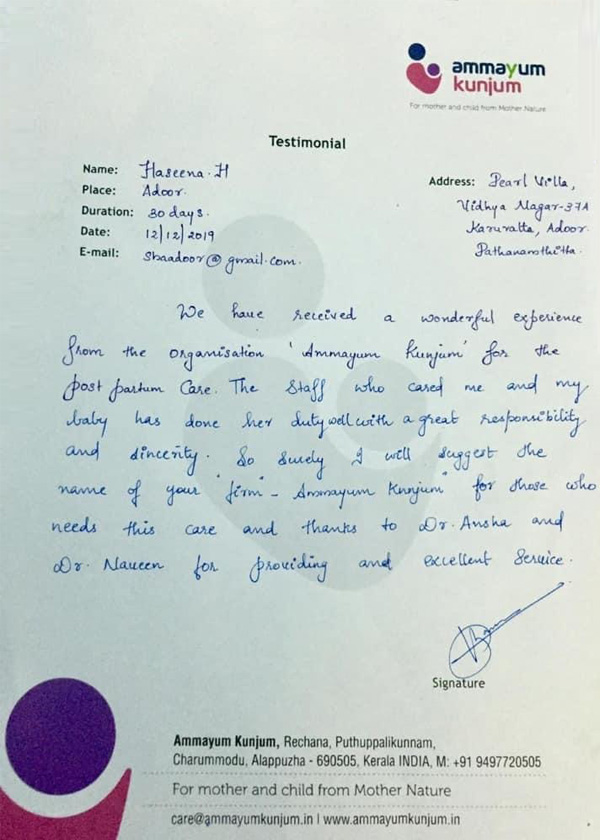 ammayum
kunjum
For mother and child from Mother Nature
Testimonial
Name: Haseena. H
Place: Adoor.
Duration: 30 days.
Date: 12/12/2019
E-mail: Sbaadoor@gmail.com.
Address: Pearl Villa,
Vidhya Nagar-37A
Karuvatta, Adoor.
Pathanamthitta.
We have received a wonderful experience
from the organisation 'Ammayum Kunjum' for the
post partum Care. The Staff who cared me and my
baby has done her duty well with a great responsibility
and sincerity. So surely I will suggest the
name of your "firm - Ammayum Kunjum" for those who
needs this care and thanks to Dr. Ansha and
Dr. Naveen for providing and excellent Service.
Signature
Ammayum Kunjum, Rechana, Puthuppalikunnam,
Charummodu, Alappuzha - 690505, Kerala INDIA, M: +91 9497720505
For mother and child from Mother Nature
care@ammayumkunjum.in | www.ammayumkunjum.in